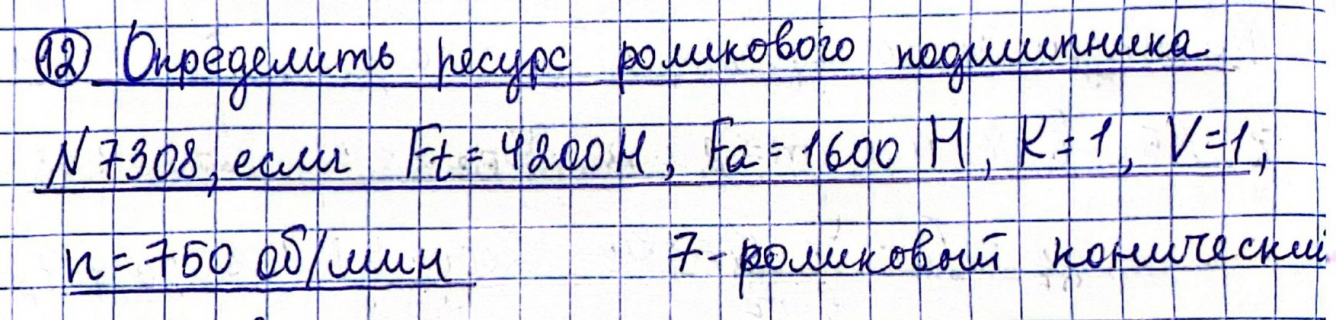 12 Определить ресурс роликового подшипника
N7308, если Ft=4200Н, Fa=1600 Н, K=1, V=1,
n=750 об/мин 7-роликовый конический